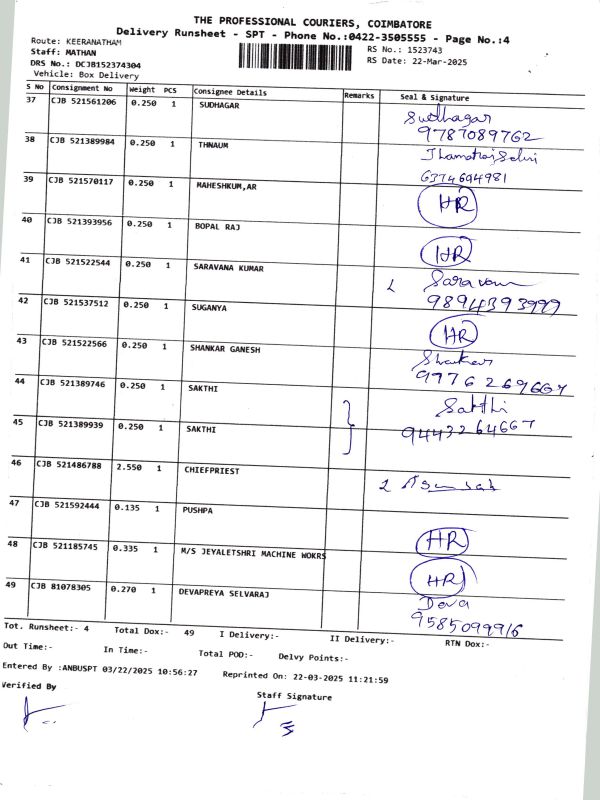 THE PROFESSIONAL COURIERS, COIMBATORE
Delivery Runsheet - SPT - Phone No.:0422-3505555 - Page No.:4
Route: KEERANATHAM
RS No.: 1523743
Staff: MATHAN
RS Date: 22-Mar-2025
DRS No.: DCJB152374304
Vehicle: Box Delivery
S No Consignment No Weight PCS Consignee Details Remarks Seal & Signature
37 CJB 521561206 0.250 1 SUDHAGAR Sudhagar
9787089762
38 CJB 521389984 0.250 1 THNAUM
6374694981
39 CJB 521570117 0.250 1 MAHESHKUM,AR HR
40 CJB 521393956 0.250 1 BOPAL RAJ HR
41 CJB 521522544 0.250 1 SARAVANA KUMAR Saravan
9894393999
42 CJB 521537512 0.250 1 SUGANYA HR
43 CJB 521522566 0.250 1 SHANKAR GANESH
44 CJB 521389746 0.250 1 SAKTHI Sakthi
45 CJB 521389939 0.250 1 SAKTHI 9443264667
46 CJB 521486788 2.550 1 CHIEFPRIEST
47 CJB 521592444 0.135 1 PUSHPA HR
48 CJB 521185745 0.335 1 M/S JEYALETSHRI MACHINE WOKRS HR
49 CJB 81078305 0.270 1 DEVAPREYA SELVARAJ Deva
9585099916
Tot. Runsheet:- 4 Total Dox:- 49 I Delivery:- II Delivery:- RTN Dox:-
Out Time:- In Time:- Total POD:- Delvy Points:-
Entered By :ANBUSPT 03/22/2025 10:56:27 Reprinted On: 22-03-2025 11:21:59
Verified By
Staff Signature